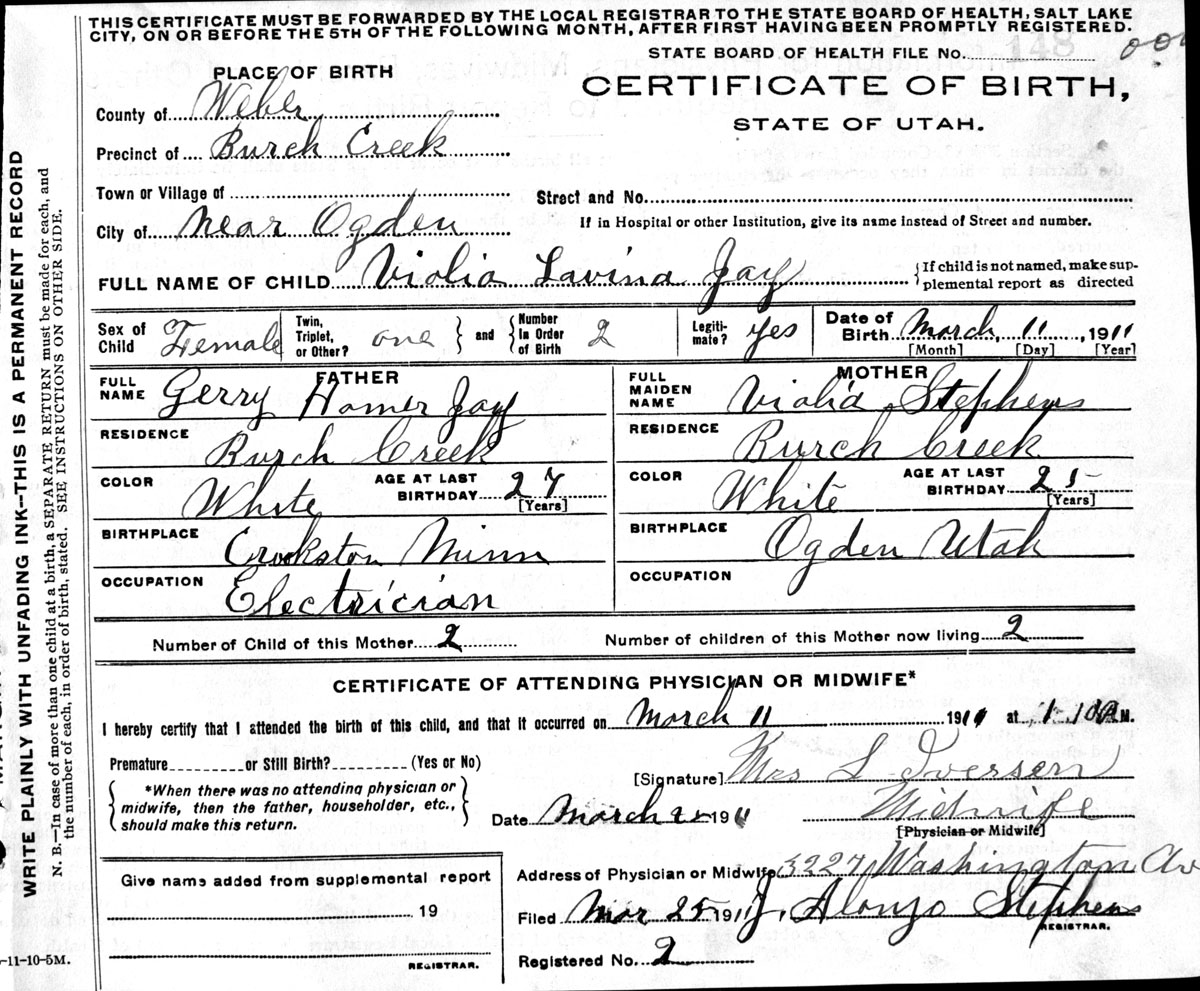 THIS CERTIFICATE MUST BE FORWARDED BY THE LOCAL REGISTRAR TO THE STATE BOARD OF HEALTH, SALT LAKE
CITY, ON OR BEFORE THE 5TH OF THE FOLLOWING MONTH, AFTER FIRST HAVING BEEN PROMPTLY REGISTERED.
STATE BOARD OF HEALTH FILE No. 148
PLACE OF BIRTH
CERTIFICATE OF BIRTH,
STATE OF UTAH.
County of Weber
Precinct of Burch Creek
Town or Village of
Street and No.
City of near Ogden
If in Hospital or other Institution, give its name instead of Street and number.
FULL NAME OF CHILD Violia Lavina Jay
{If child is not named, make sup-
plemental report as directed
Sex of Child Female
Twin, Triplet, or Other? one } and { Number In Order of Birth 2
Legiti-mate? yes
Date of Birth March, 11, 1911
[Month] [Day] [Year]
FATHER
FULL NAME Gerry Homer Jay
RESIDENCE Burch Creek
COLOR White AGE AT LAST BIRTHDAY 27 [Years]
BIRTHPLACE Crookston Minn
OCCUPATION Electrician
MOTHER
FULL MAIDEN NAME Violia Stephens
RESIDENCE Burch Creek
COLOR White AGE AT LAST BIRTHDAY 25 [Years]
BIRTHPLACE Ogden Utah
OCCUPATION
Number of Child of this Mother 2 Number of children of this Mother now living 2
CERTIFICATE OF ATTENDING PHYSICIAN OR MIDWIFE*
I hereby certify that I attended the birth of this child, and that it occurred on March 11 1911 at M.
Premature or Still Birth? (Yes or No)
[Signature] Mrs L Iversen
{ *When there was no attending physician or
midwife, then the father, householder, etc.,
should make this return. }
Date March 1911
Midwife
[Physician or Midwife]
Give name added from supplemental report
19
REGISTRAR.
Address of Physician or Midwife 3227 Washington Av
Filed Mar 25 1911 J. Alonzo Stephens
REGISTRAR.
Registered No. 2
WRITE PLAINLY WITH UNFADING INK—THIS IS A PERMANENT RECORD
N. B.—In case of more than one child at a birth, a SEPARATE RETURN must be made for each, and
the number of each, in order of birth, stated. SEE INSTRUCTIONS ON OTHER SIDE.
-11-10-5M.